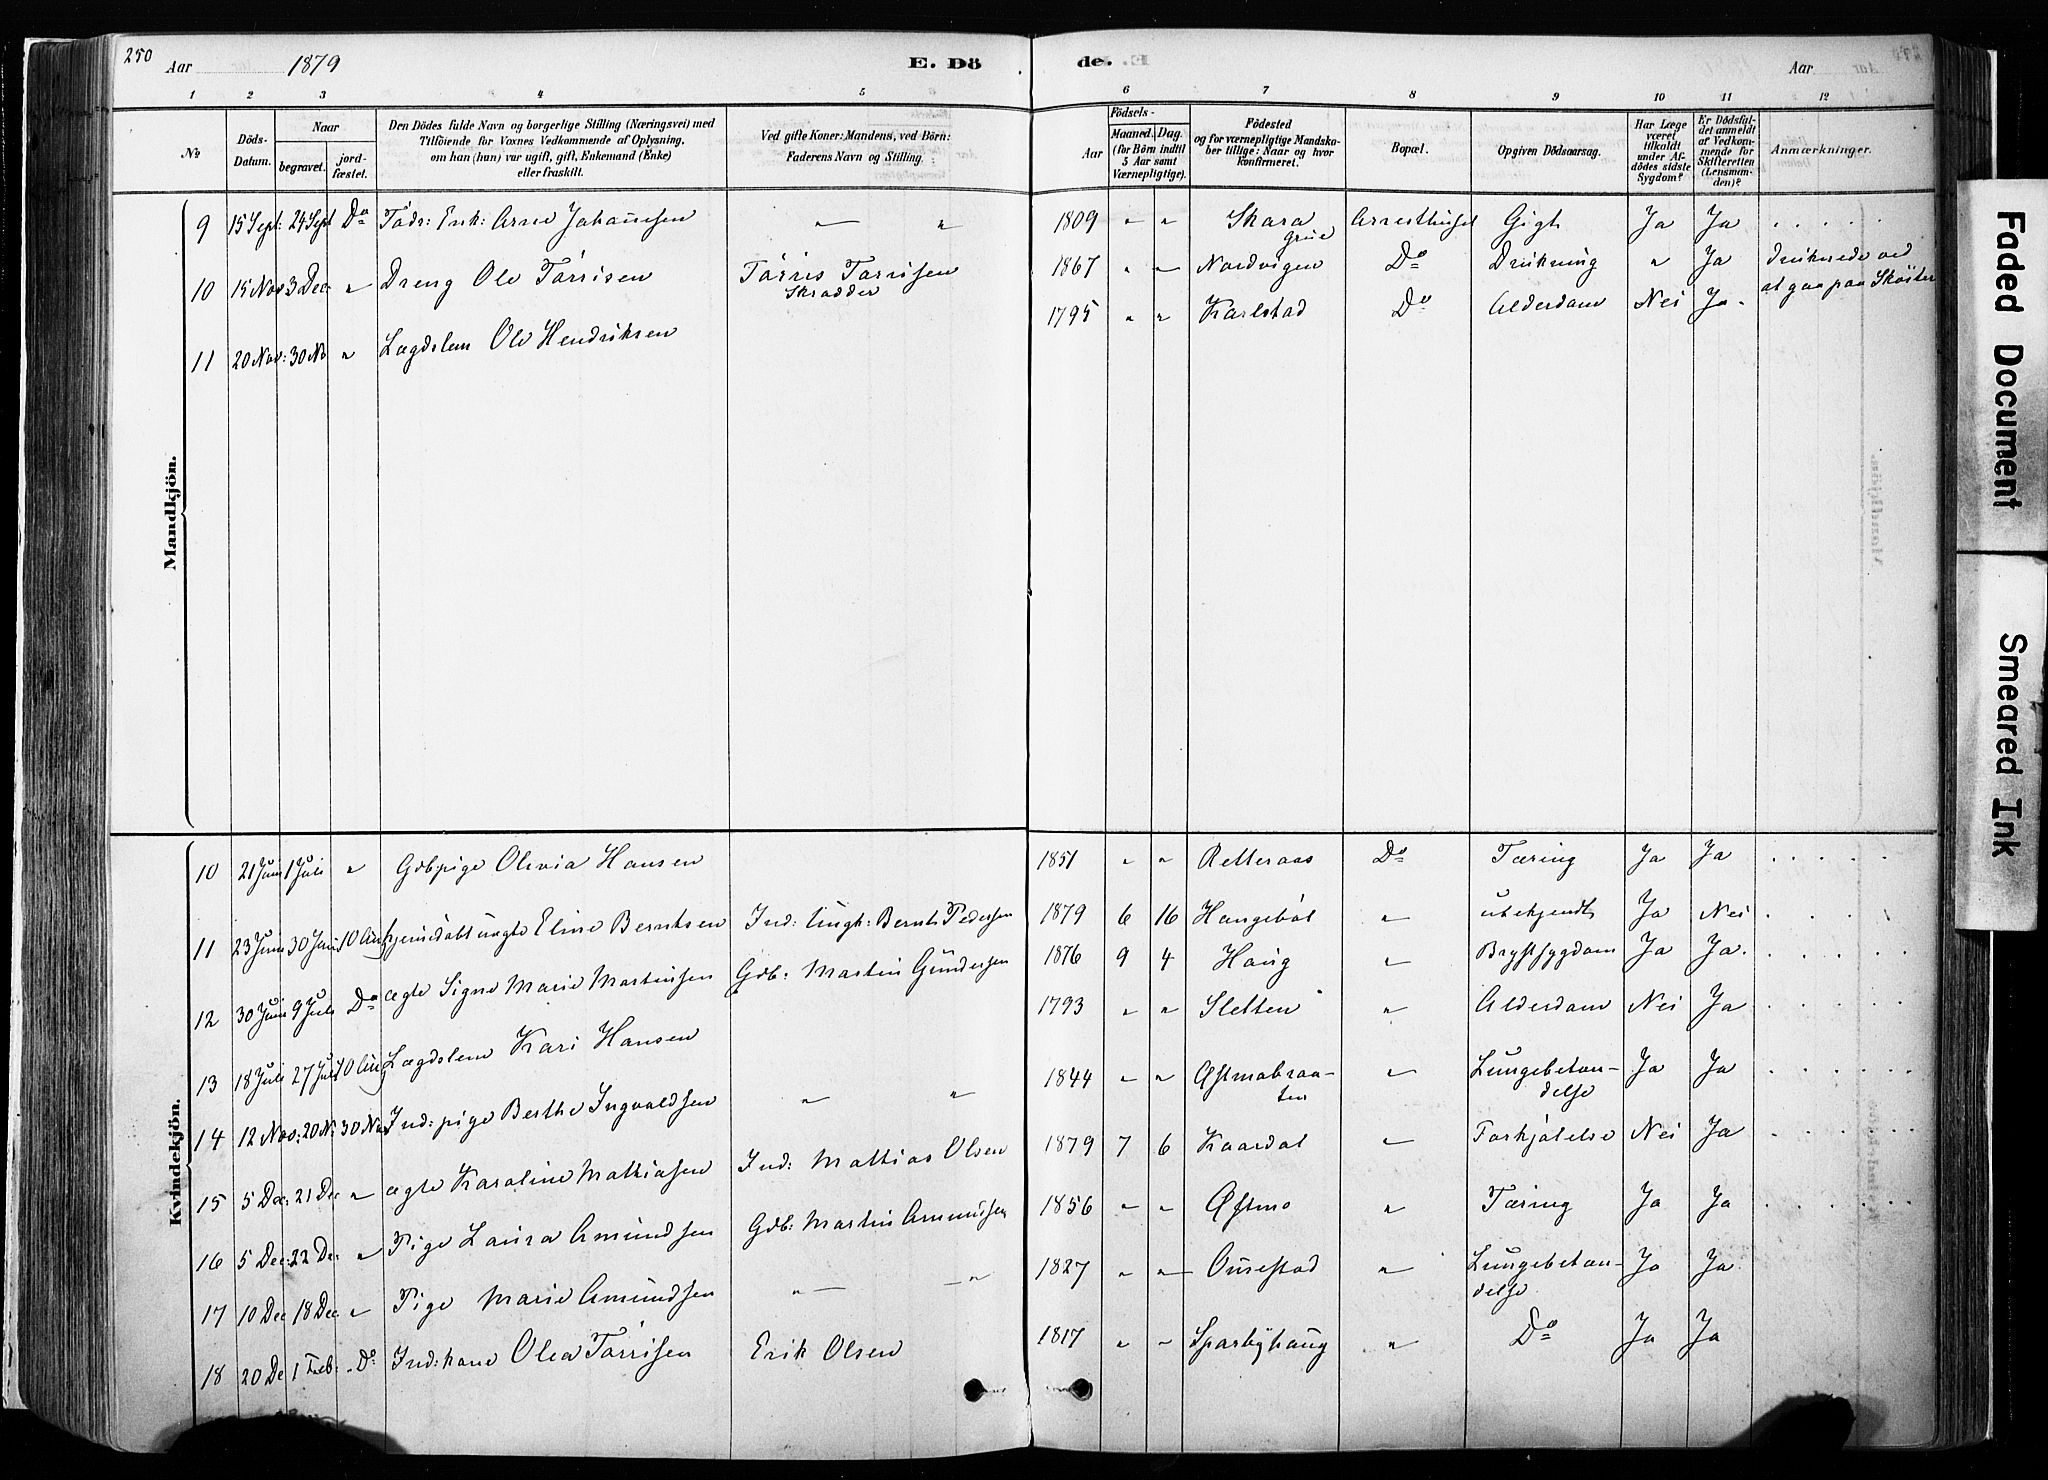 250
Aar 1879
E. Dö
de.
Aar
1 2 3 4 5
6 7 8 9 10 11 12
№
Döds-Datum.
Naar
begravet.
jord-fæstet.
Den Dödes fulde Navn og borgerlige Stilling (Næringsvei) med
Tilföiende for Voxnes Vedkommende af Oplysning,
om han (hun) var ugift, gift, Enkemand (Enke)
eller fraskilt.
Ved gifte Koner: Mandens, ved Börn:
Faderens Navn og Stilling.
Födsels-
Aar
Maaned. Dag.
(for Börn indtil
5 Aar samt
Værnepligtige).
Födested
og for værnepligtige Mandska-
ber tillige: Naar og hvor
konfirmeret.
Bopæl.
Opgiven Dödsaarsag.
Har Læge
været
tilkaldt
under Af-
dödes sidste
Sygdom?
Er Dödsfal-
det anmeldt
af Vedkom-
mende for
Skifteretten
(Lensman-
den)?
Anmærkninger.
Mandkjön.
9 15 Sept: 24 Sept Do Fads: Enk: Arne Johannesen — " 1809 " " Skara grue Arresthuset Gigt Ja Ja . . . . .
10 15 Nov 3 Dec " Dreng Ole Törrisen Törris Torrisen Skrædder 1867 " " Nordvigen Do Drukning " Ja druknede ved at gaa paa Sköiter
11 20 Nov: 30 No " Lægdslem Ole Hendriksen 1795 " " Karlstad Do Alderdom Nei Ja
Kvindekjön.
10 21 Juni 1 Juli " Gdbpige Olivia Hansen 1851 " " Retteraas Do Tæring Ja Ja . . . . .
11 23 Juni 30 Juni 10 Aug Eline Berntsen Ind: Ungk: Bernt Pedersen 1879 6 16 Haugeböl " ubekjendt Ja Nei
12 30 Juni 9 Juli Do ægte Signe Marie Martinsen Gdb: Martin Gundersen 1876 9 4 Haug " Brystsygdom Ja Ja
13 18 Juli 27 Juli 10 Aug Lægdslem Kari Hansen 1793 " " Sletten " Alderdom Nei Ja
14 12 Nov: 20 N. 30 Nov Ind: pige Berthe Ingvaldsen " " 1844 " " Østmobraaten " Lungebetændelse Ja Ja
15 5 Dec: 21 Dec " ægte Karoline Mathiasen Ind: Mathias Olsen 1879 7 6 Kaardal " Forkjölelse Nei Ja
16 5 Dec: 22 De " Pige Laura Amundsen Gdb: Martin Amundsen 1856 " " Østmo " Tæring Ja Ja
17 10 Dec 18 Dec " Pige Marie Amundsen " — — " 1827 " " Ousestad " Lungebetændelse Ja Ja
18 20 De 1 Feb: Do Ind: kone Olea Törrisen Erik Olsen 1817 " " Sparbyhaug " Do Ja Ja
Faded Document
Smeared Ink